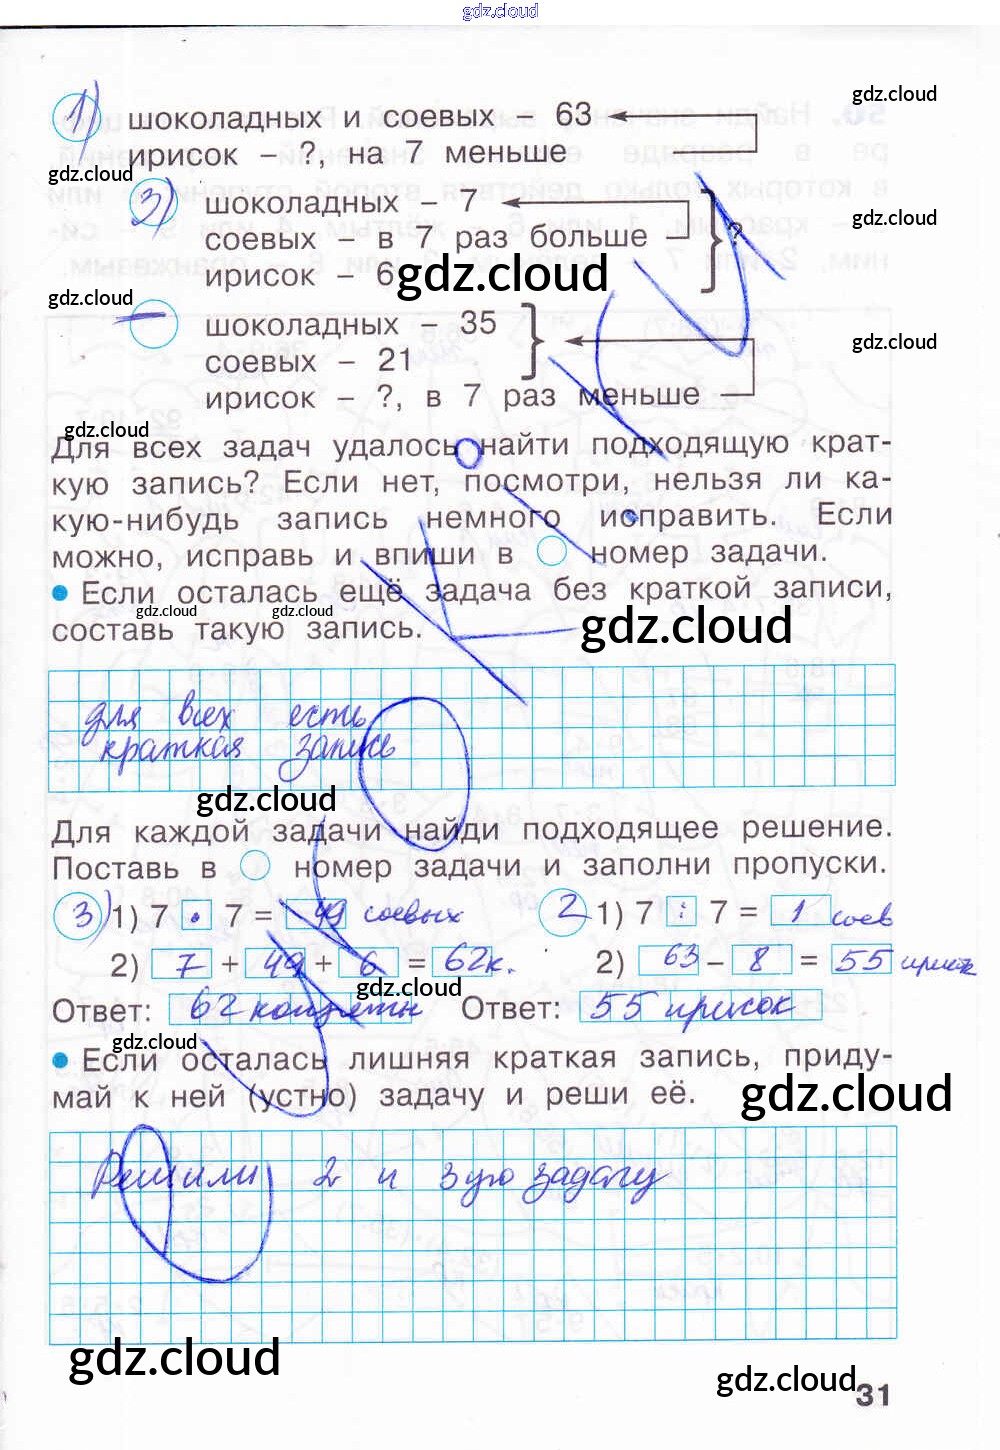 gdz.cloud
1) шоколадных и соевых – 63
gdz.cloud
ирисок – ?, на 7 меньше
gdz.cloud
3) шоколадных – 7
соевых – в 7 раз больше ?
gdz.cloud
ирисок – 6
gdz.cloud
gdz.cloud
шоколадных – 35
соевых – 21
gdz.cloud
ирисок – ?, в 7 раз меньше
gdz.cloud
Для всех задач удалось найти подходящую крат-
кую запись? Если нет, посмотри, нельзя ли ка-
кую-нибудь запись немного исправить. Если
можно, исправь и впиши в номер задачи.
• Если осталась ещё задача без краткой записи,
gdz.cloud gdz.cloud
составь такую запись.
gdz.cloud
для всех есть
краткая запись
gdz.cloud
Для каждой задачи найди подходящее решение.
Поставь в номер задачи и заполни пропуски.
3) 1) 7 · 7 = 49 соевых 2 1) 7 : 7 = 1 соев
2) 7 + 49 + 6 = 62к. 2) 63 – 8 = 55 ирисок
gdz.cloud
Ответ: 62 конфеты Ответ: 55 ирисок
gdz.cloud
• Если осталась лишняя краткая запись, приду-
май к ней (устно) задачу и реши её.
gdz.cloud
Решили 2 и 3ую задачу
gdz.cloud
gdz.cloud
31